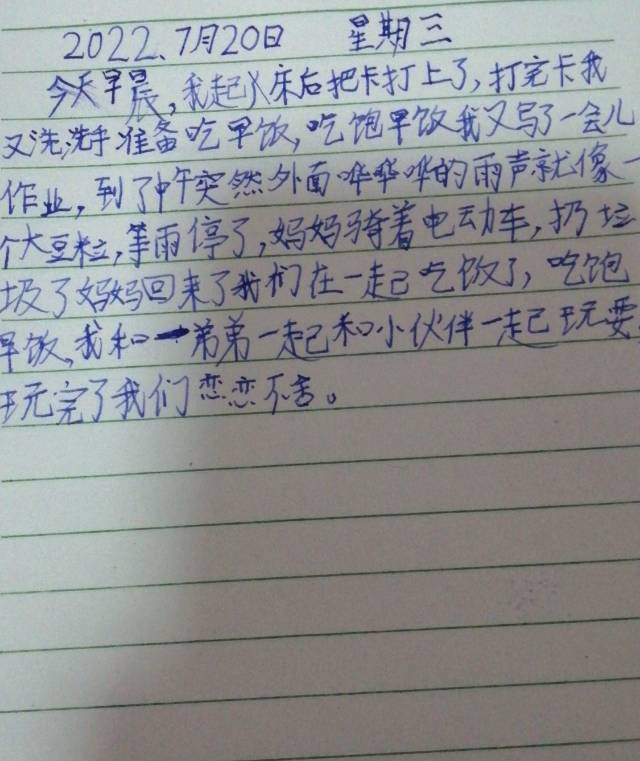 2022.7月20日 星期三
今天早晨,我起床后把卡打上了,打完卡我
又洗洗手准备吃早饭,吃饱早饭我又写了一会儿
作业,到了中午突然外面哗哗哗的雨声就像一
个大豆粒,等雨停了,妈妈骑着电动车,扔垃
圾了妈妈回来了我们在一起吃饭了,吃饱
早饭,我和弟弟一起和小伙伴一起玩耍,
玩完了我们恋恋不舍。